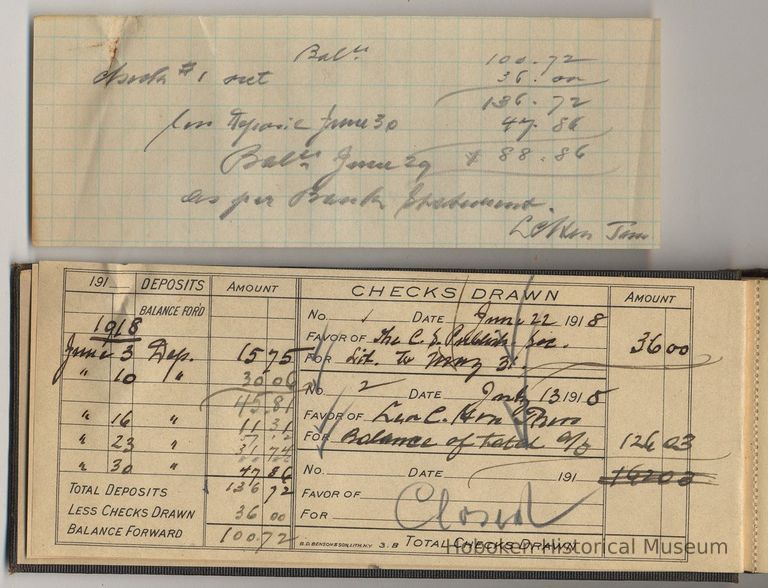 Bal
100.72
Check #1 out 36.00
136.72
less Deposit June 30 47.86
Bal June 29 $ 88.86
as per Bank Statement.
191 DEPOSITS AMOUNT
BALANCE FOR'D
1918
June 3 Dep. 15 75
" 10 " 30 06
45.81
" 16 " 11 31
" 23 "
" 30 " 47 86
TOTAL DEPOSITS 136 72
LESS CHECKS DRAWN 36 00
BALANCE FORWARD 100.72
CHECKS DRAWN AMOUNT
No. 1 DATE June 22 1918
FAVOR OF The C. S. Publish. Soc.
FOR Lit. to May 31. 36 00
No. 2 DATE July 13 1918
FAVOR OF Leo C. Bros
FOR Balance of total a/c 126 03
No. DATE 191
FAVOR OF
FOR Closed
B.D. BENSON & SON. LITH. N.Y. 3.B TOTAL CHECKS DRAWN
Hoboken Historical Museum